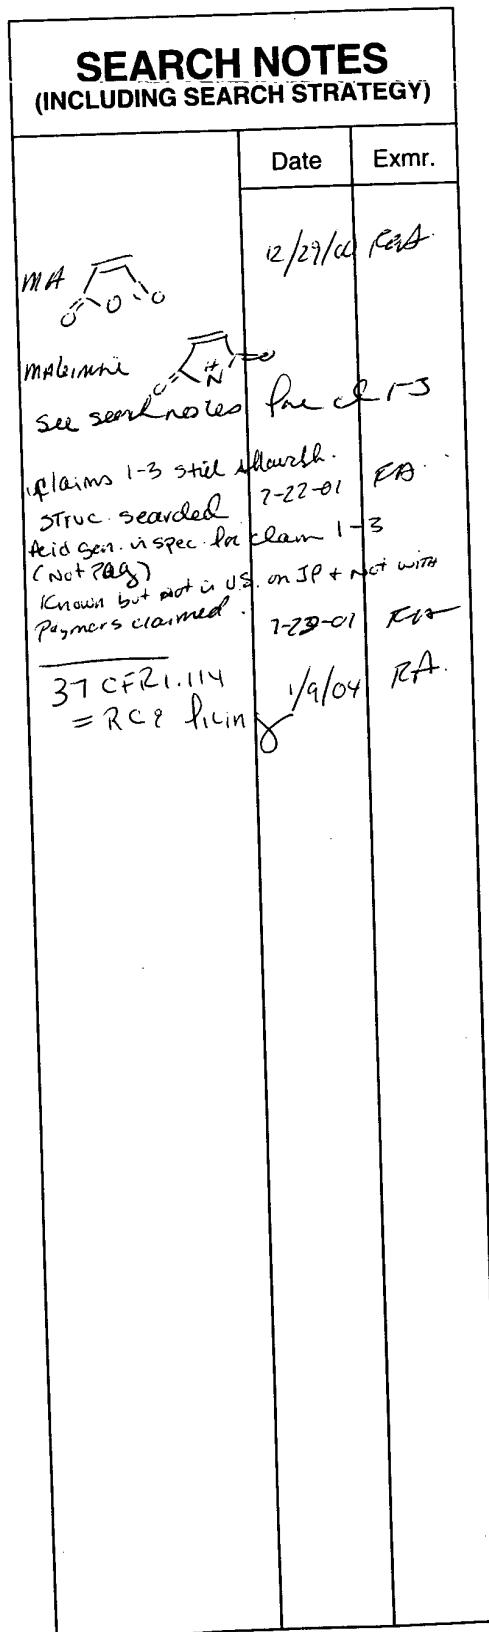 SEARCH NOTES
(INCLUDING SEARCH STRATEGY)
Date Exmr.
MA 12/29/00
O O O
O H N O
See search notes for cl 1-3
claims 1-3 still allowable.
Struc. searched 7-22-01
Acid gen. in spec. for claim 1-3
(Not PAG)
Known but not in U.S. or JP + not with
Polymers claimed. 7-23-01
37 CFR 1.114 1/9/04 RA.
= RCE filing